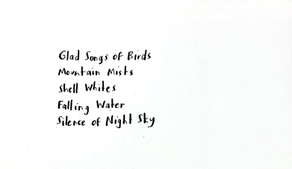 Glad Songs of Birds
Mountain Mists
Shell Whites
Falling Water
Silence of Night Sky